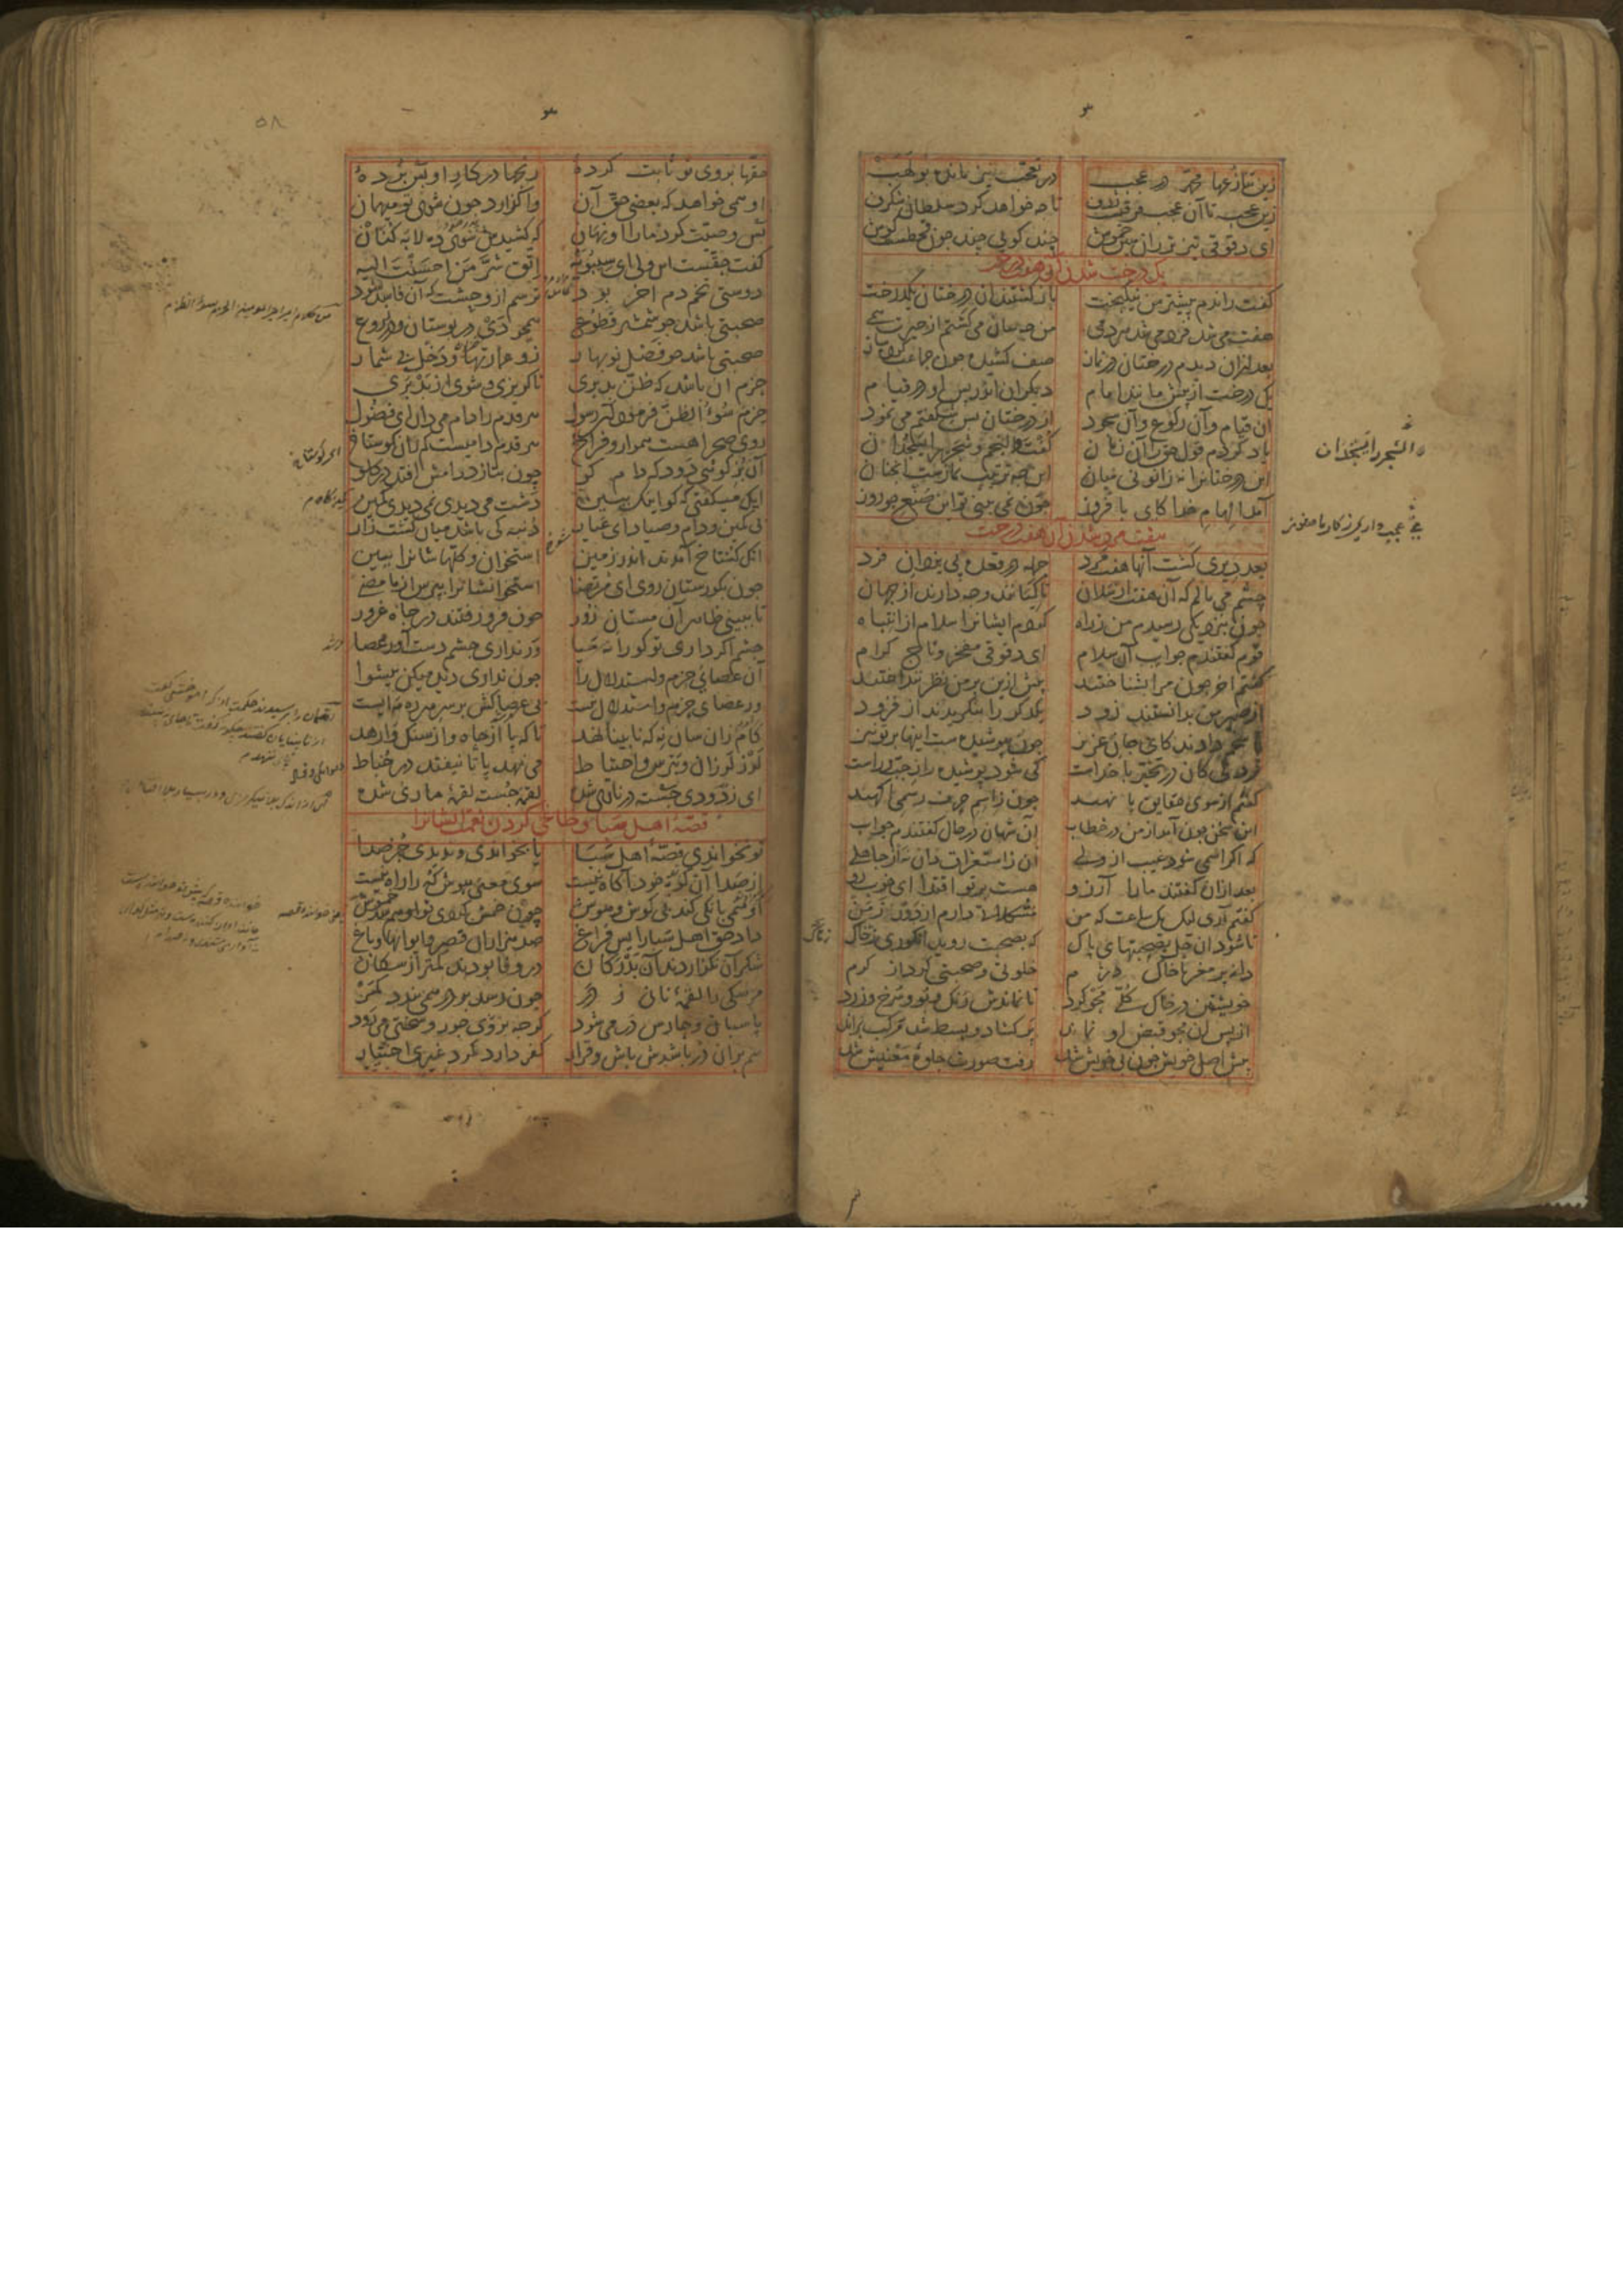 زین تنازعها محمد در عجب در تعجب نیز مانده بولهب
زین عجب تا آن عجب فرقیست ژرف تا چه خواهد کرد سلطان شکرف
ای دقوقی تیزتر ران هین خموش چند کویی چند چون قحطست کوش
یک درخت شدن آن هفت درخت
کفت راندم پیشتر من نیکبخت باز کشتند آن درختان یک درخت
هفت می شد فرد می شد هر دمی من چه سان می کشتم از حیرت همی
بعد از آن دیدم درختان در نماز صف کشیده چون جماعت کرده ساز
یک درخت از پیش مانند امام دیکران اندر پس او در قیام
آن قیام و آن رکوع و آن سجود از درختان بس شکفتم می نمود
یاد کردم قول حق را آن زمان کفت النجم و شجر را یسجدان
این درختانرا نه زانو نی میان این چه ترتیب نمازست آنچنان
آمد الهام خدا کای با فروز چون نمی بینی تو این صنع هنوز
هفت مرد شدن آن هفت درخت
بعد دیری کشت آنها هفت مرد جمله در قعده پی یزدان فرد
چشم می مالم که آن هفت ارسلان تا کیانند و چه دارند از جهان
چون بنزدیکی رسیدم من ز راه کردم ایشانرا سلام از انتباه
قوم کفتندم جواب آن سلام ای دقوقی مفخر و تاج کرام
کفتم آخر چون مرا بشناختند پیش ازین بر من نظر نداختند
از ضمیر من بدانستند زود یکدکر را بنکریدند از فرود
پاسخم دادند کای جان عزیز چون بپوشیده ست اینها بر تو نیز
بر دلی کان در تحیر با خداست کی شود پوشیده راز چپ و راست
کفتم ار سوی حقایق پا نهند چون ز اسم حرف رسمی آکهند
این سخن چون آمد از من در خطاب آن شهان در حال کفتندم جواب
که اکر اسمی شود غیب از ولی آن ز استغراق دان نه از جاهلی
بعد ازان کفتند ما را آرزو هست بر تو اقتدا ای خوب رو
کفتم آری لیک یک ساعت که من مشکلاتی دارم از دور زمن
تا شود آن حل بصحبتهای پاک که بصحبت روید انکوری ز خاک
دانه پر مغز با خاک دژم خلوتی و صحبتی کرد از کرم
خویشتن در خاک کلی محو کرد تا نماندش رنک و بو و سرخ و زرد
از پس آن محو قبض او نماند پر کشاد و بسط شد مرکب براند
پیش اصل خویش چون بی خویش شد رفت صورت جلوه معنیش شد
والشجر یسجدان
حقها بر روی تو ثابت کرده رنجها در کار او بس برده
او همی خواهد که بعضی حق آن واکزارد چون شوی تو میهمان
بس وصیت کرد ما را او نهان که کشیدش سوی ده لابه کنان
کفت حقست این ولی ای سیبویه اتق شر من احسنت الیه
دوستی تخم دم آخر بود ترسم از وحشت که آن فاسد شود
صحبتی باشد چو شمشیر قطوع همچو دی در بوستان و در زروع
صحبتی باشد چو فصل نوبهار زو عمارتها و دخل بی شمار
حزم آن باشد که ظن بد بری تا کریزی و شوی از بد بری
حزم سوء الظن فرمود آن رسول هر قدم را دام می دان ای فضول
روی صحرا هست هموار و فراخ هر قدم دامیست کم ران کوستاخ
آن بز کوهی دود که دام کو چون بتازد دامش افتد در کلو
آنک میکفتی که کو اینک ببین دشت می دیدی نمی دیدی کمین
بی کمین و دام و صیاد ای عیار دنبه کی باشد میان کشت زار
آنک کستاخ آمدند اندر زمین استخوان و کلهاشانرا ببین
چون بکورستان روی ای مرتضا استخوانشانرا بپرس از ما مضی
تا ببینی ظاهر آن مستان کور چون فرو رفتند در چاه غرور
چشم اکر داری تو کورانه میا ور نداری چشم دست آور عصا
آن عصای حزم و استدلال را چون نداری دید میکن پیشوا
ور عصای حزم و استدلال نیست بی عصاکش بر سر هر ره مه ایست
کام زان سان نه که نابینا نهد تا که پا از چاه و از سنک وارهد
لرز لرزان و بترس و احتیاط می نهد پا تا نیفتد در خباط
ای ز دودی جسته در ناری شده لقمه جسته لقمه ماری شده
قصه اهل سبا و طاغی کردن نعمت ایشانرا
تو نخواندی قصه اهل سبا یا بخواندی و ندیدی جز صدا
از صدا آن کوه خود آکاه نیست سوی معنی هوش که را راه نیست
او همی بانکی کند بی کوش و هوش چون خمش کردی تو او هم شد خموش
داد حق اهل سبا را بس فراغ صد هزاران قصر و ایوانها و باغ
شکر آن نکزاردند آن بدرکان در وفا بودند کمتر از سکان
مر سکی را لقمه نانی ز در چون رسد بر در همی بندد کمر
پاسبان و حارس در می شود کرچه بر وی جور و سختی می رود
هم بران در باشدش باش و قرار کفر دارد کرد غیری اختیار